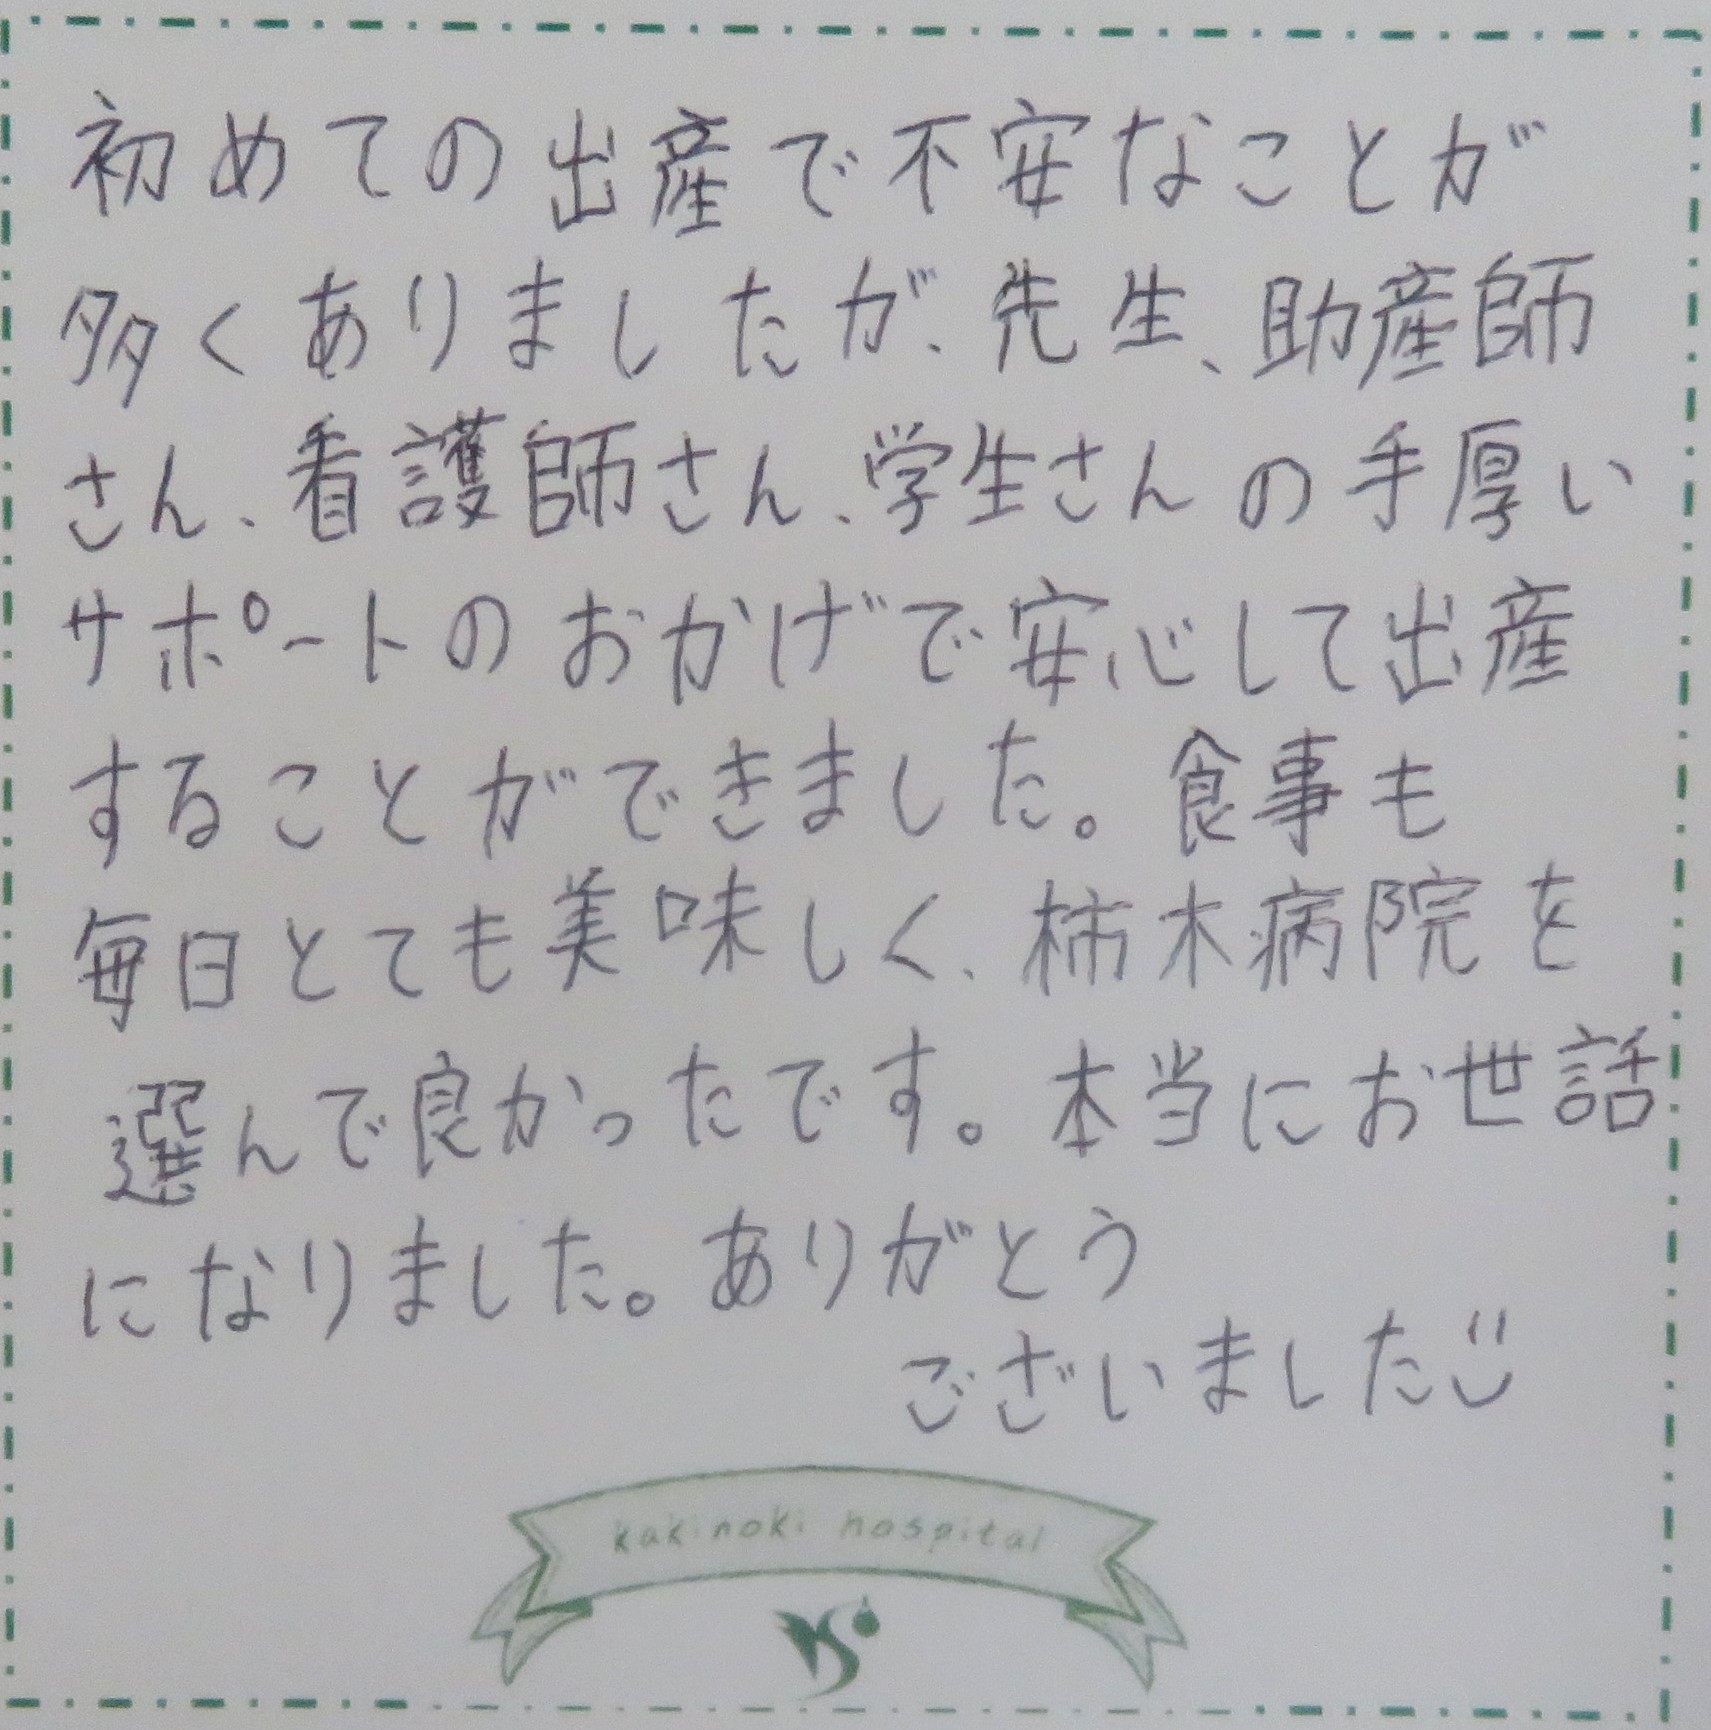 初めての出産で不安なことが
多くありましたが、先生、助産師
さん、看護師さん、学生さんの手厚い
サポートのおかげで安心して出産
することができました。食事も
毎日とても美味しく、柿木病院を
選んで良かったです。本当にお世話
になりました。ありがとう
ございました
kakinoki hospital